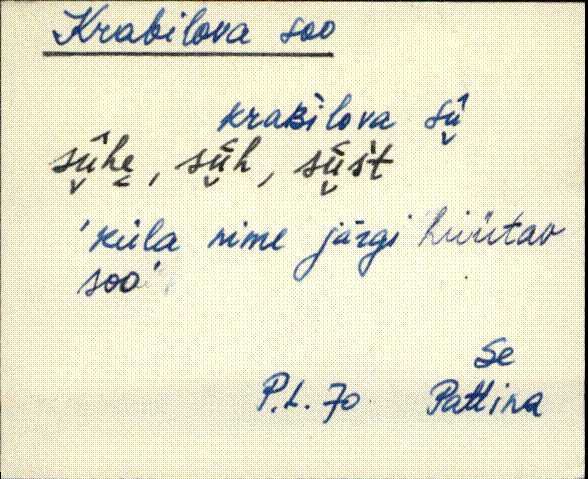 Krabilova soo
kraʙ̀ilova sū̬
sū̬he̮, sū̬h, sū̬śt
'küla nime järgi hüütav
soo'
Se
P.L. 70 Pattina